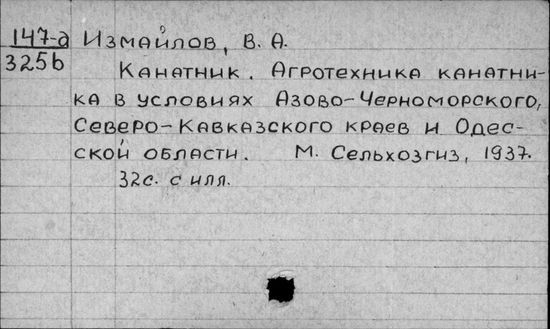 147-д Измайлов, В. А.
325b
Канатник. Агротехника канатни-
ка в условиях Азово-Черноморского,
Северо-Кавказского краев и Одес-
ской области. М. Сельхозгиз, 1937.
32с. с илл.